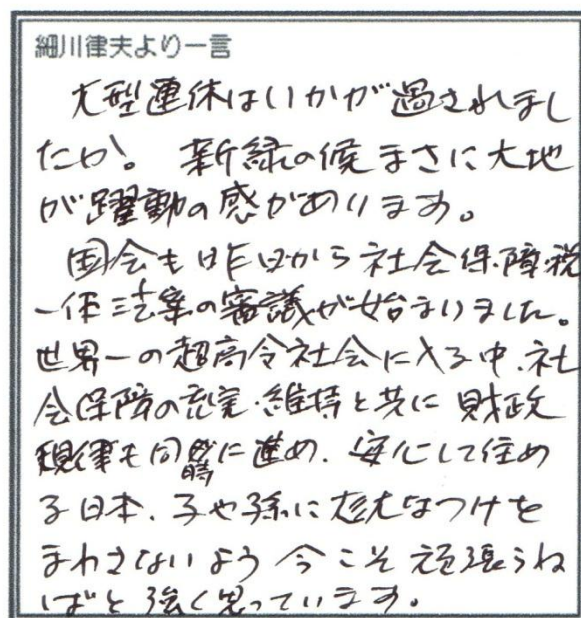 細川律夫より一言
大型連休はいかが過されまし
たか。新緑の候まさに大地
が躍動の感があります。
国会も昨日から社会保障・税
一体法案の審議が始まりました。
世界一の超高令社会に入る中、社
会保障の充実・維持と共に財政
規律も同時に進め、安心して住め
る日本、子や孫に大きなつけを
まわさないよう今こそ頑張らね
ばと強く思っています。